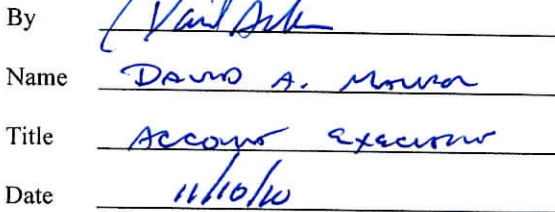 By
Name David A.
Title Account Executive
Date 11/10/10